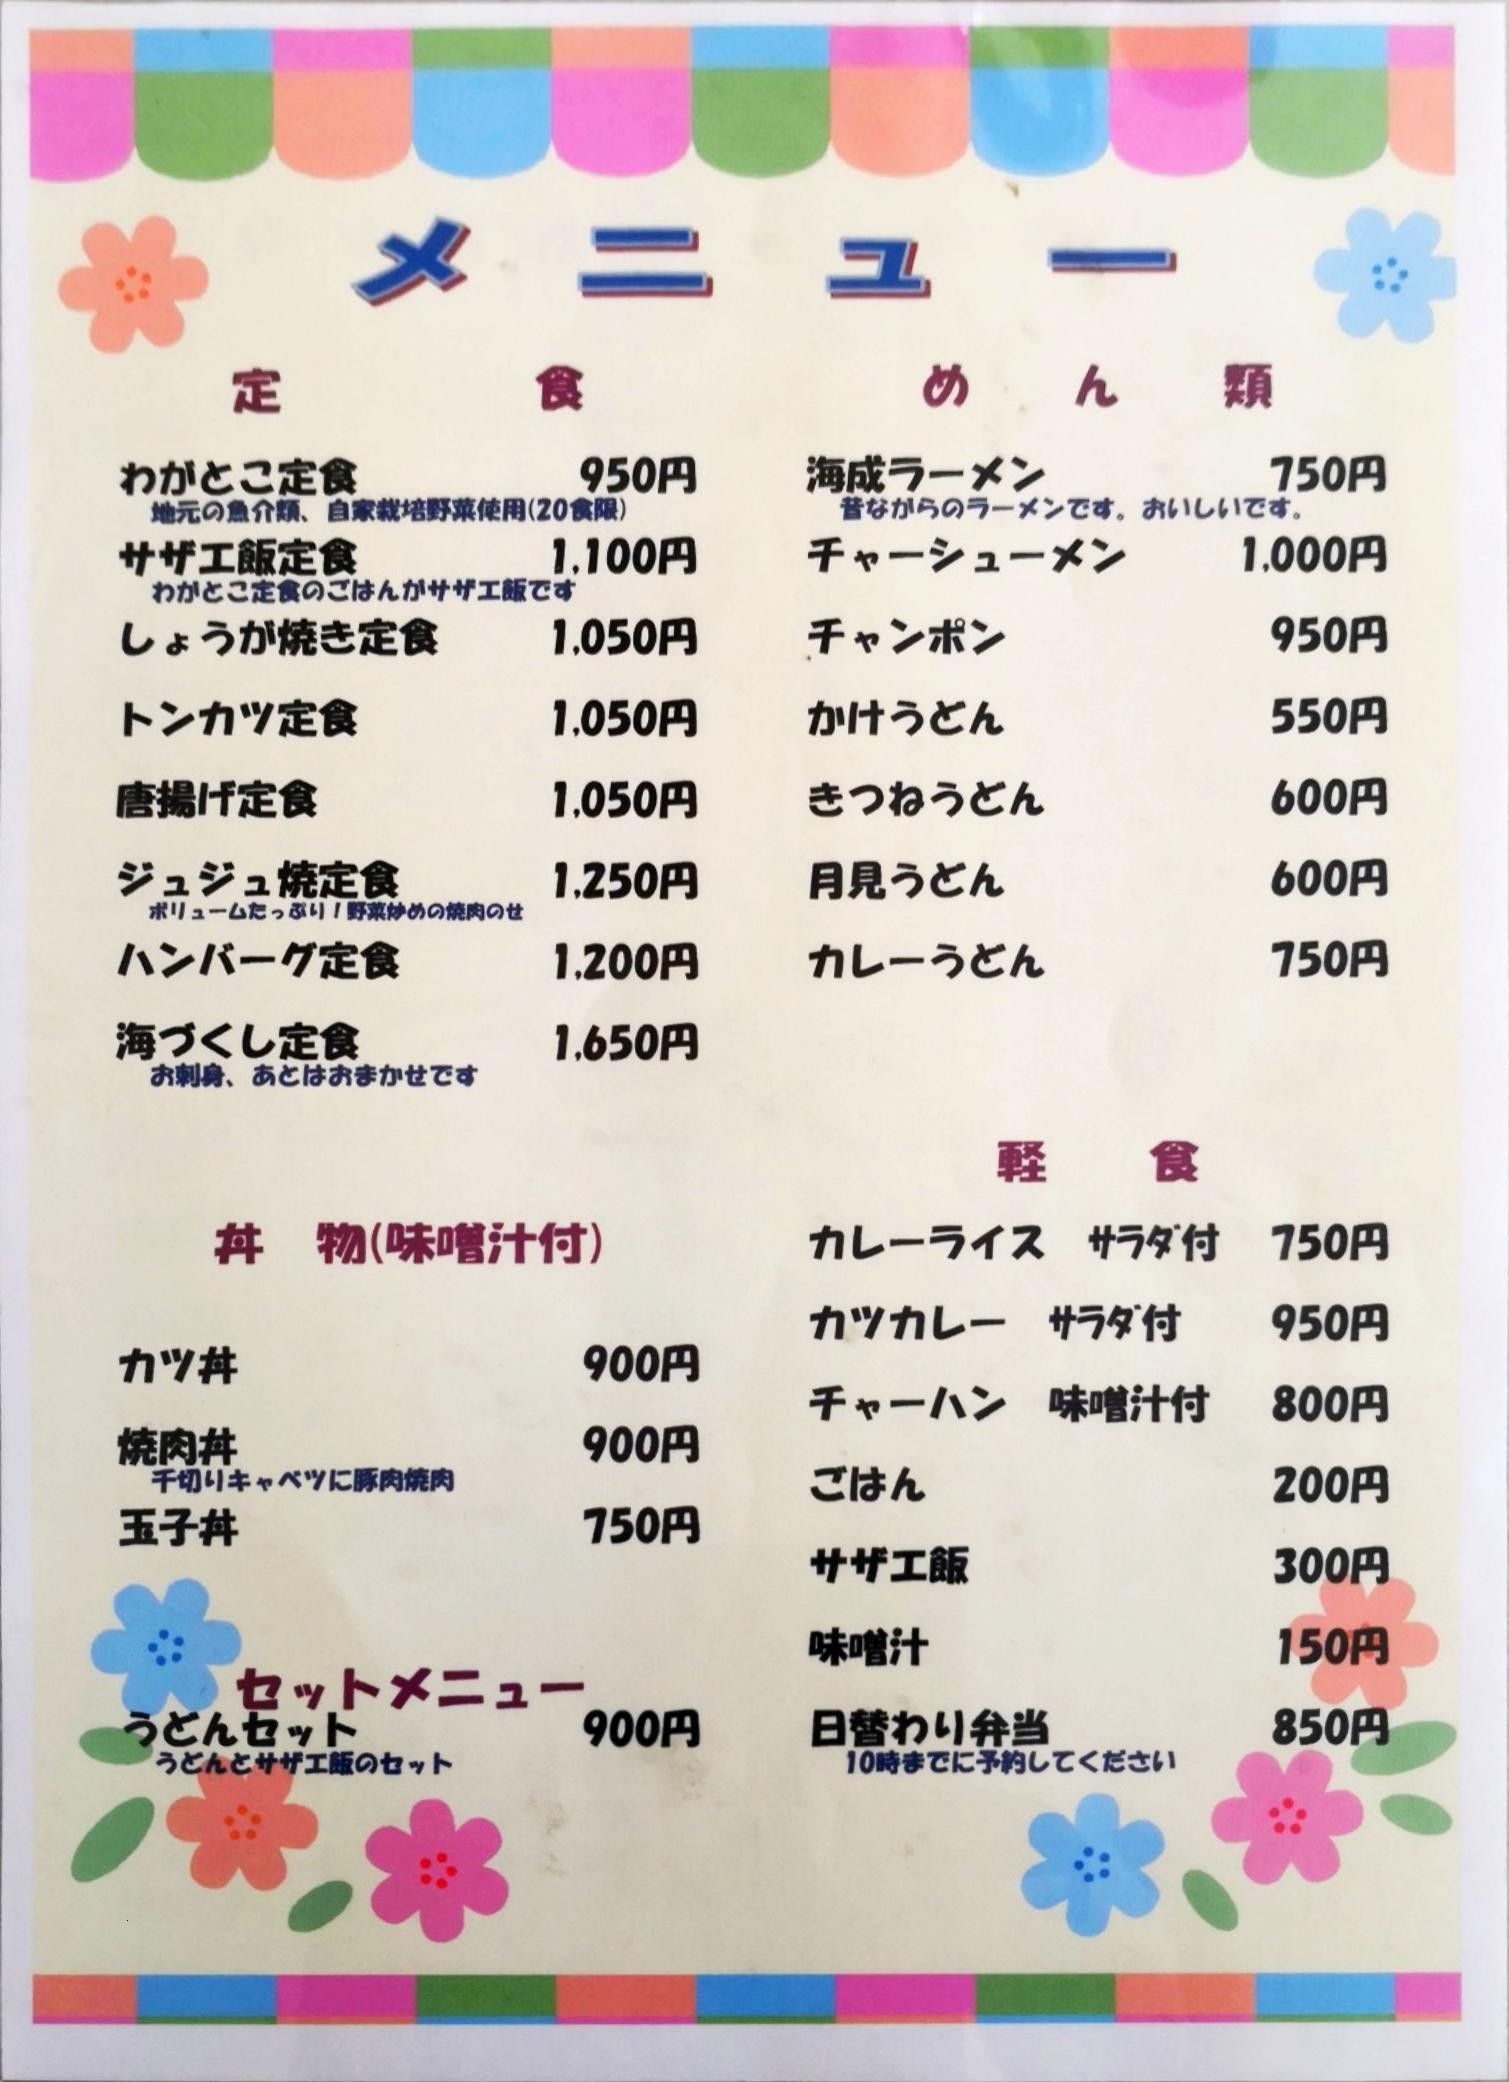 メニュー
定食
わがとこ定食 950円
地元の魚介類、自家栽培野菜使用(20食限)
サザエ飯定食 1,100円
わがとこ定食のごはんがサザエ飯です
しょうが焼き定食 1,050円
トンカツ定食 1,050円
唐揚げ定食 1,050円
ジュジュ焼定食 1,250円
ボリュームたっぷり！野菜炒めの焼肉のせ
ハンバーグ定食 1,200円
海づくし定食 1,650円
お刺身、あとはおまかせです
丼 物(味噌汁付)
カツ丼 900円
焼肉丼 900円
千切りキャベツに豚肉焼肉
玉子丼 750円
セットメニュー
うどんセット 900円
うどんとサザエ飯のセット
めん類
海成ラーメン 750円
昔ながらのラーメンです。おいしいです。
チャーシューメン 1,000円
チャンポン 950円
かけうどん 550円
きつねうどん 600円
月見うどん 600円
カレーうどん 750円
軽食
カレーライス サラダ付 750円
カツカレー サラダ付 950円
チャーハン 味噌汁付 800円
ごはん 200円
サザエ飯 300円
味噌汁 150円
日替わり弁当 850円
10時までに予約してください